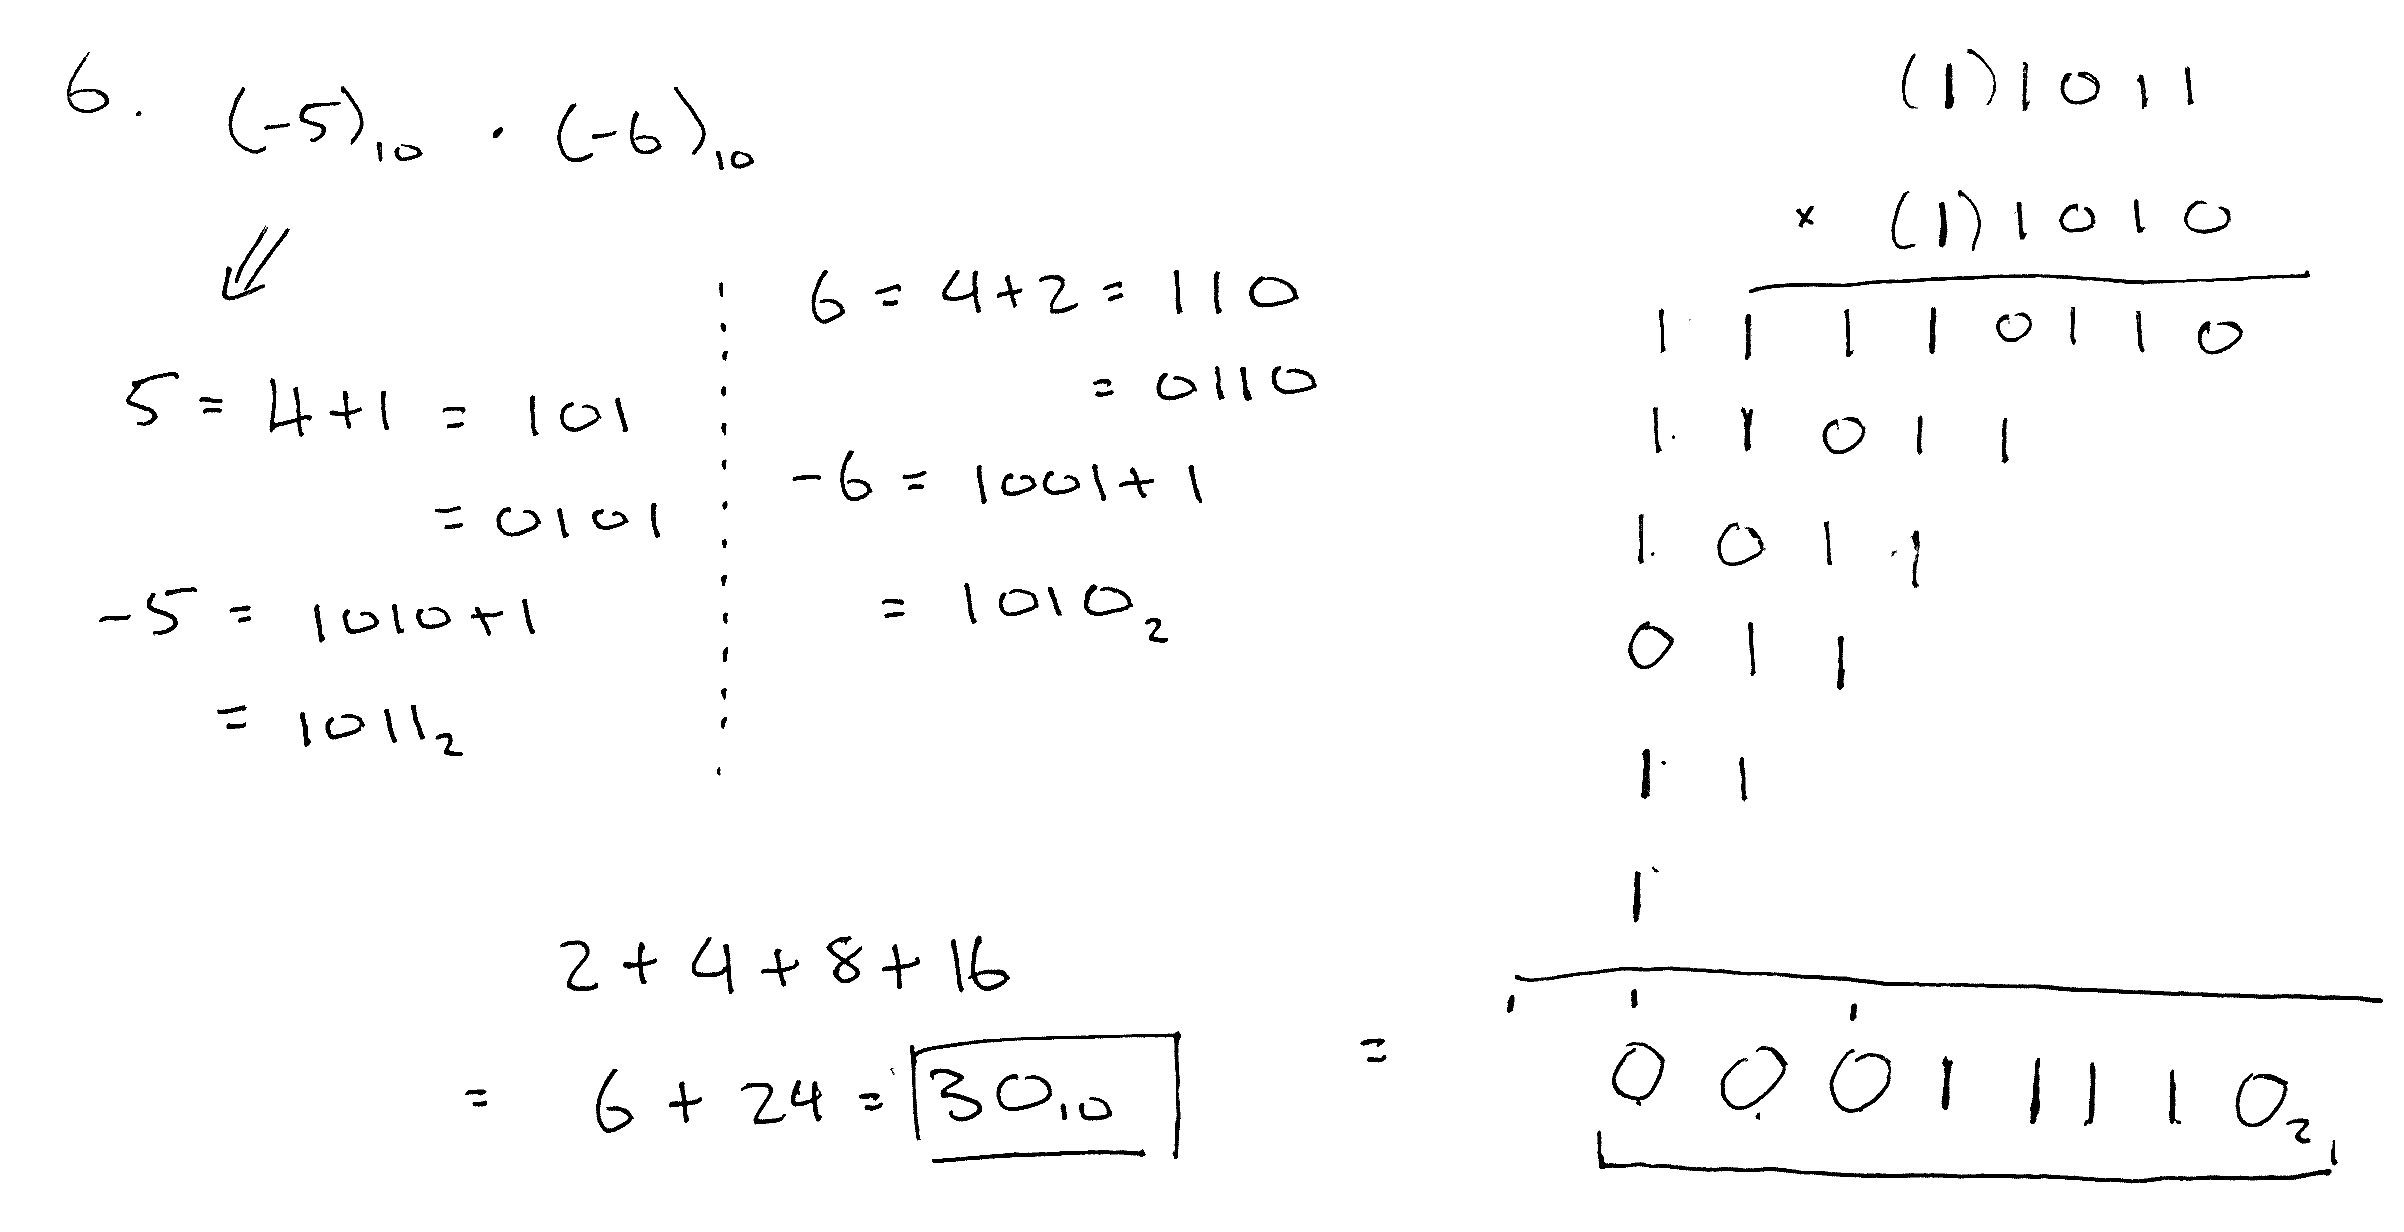 6. (-5)₁₀ · (-6)₁₀
5 = 4+1 = 101
= 0101
-5 = 1010+1
= 1011₂
6 = 4+2 = 110
= 0110
-6 = 1001+1
= 1010₂
(1)1011
× (1)1010
1 1 1 1 0 1 1 0
1 1 0 1 1
1 0 1 1
0 1 1
1 1
1
= 0 0 0 1 1 1 1 0₂
2 + 4 + 8 + 16
= 6 + 24 = 30₁₀